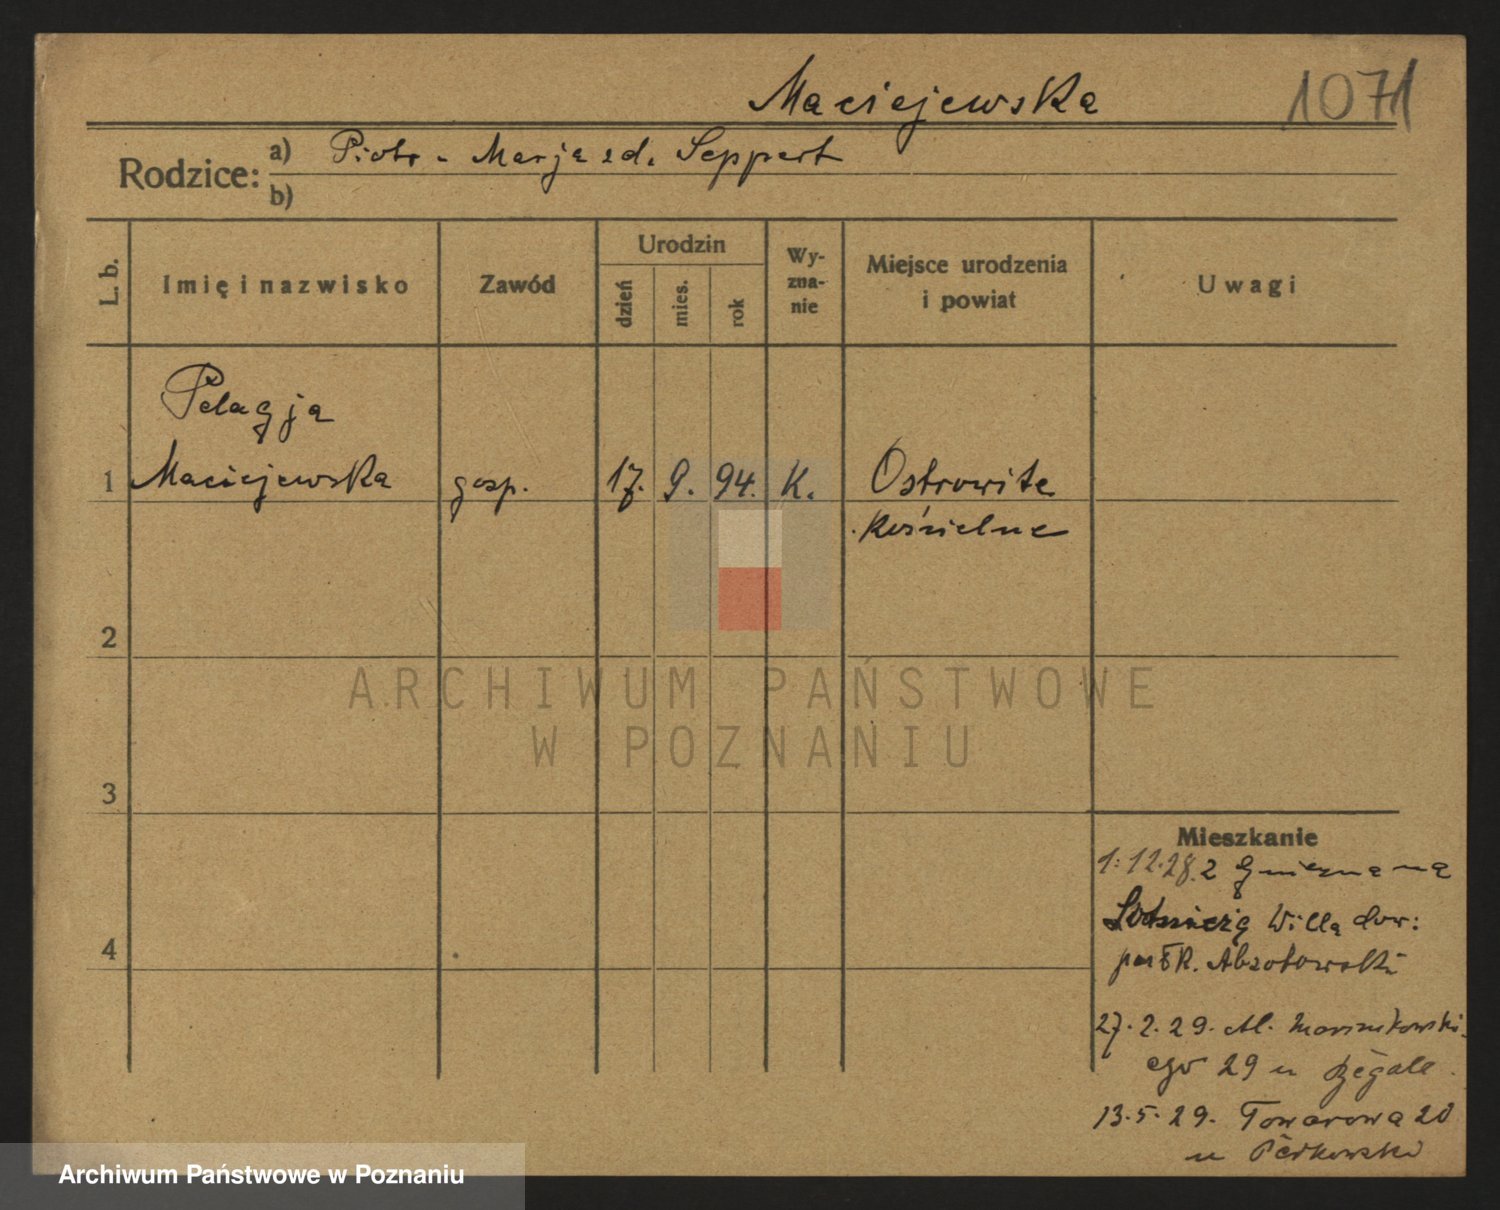 Maciejewska 1071
Rodzice: a) Piotr - Marja zd. Seppert
b)
L. b. Imię i nazwisko Zawód Urodzin dzień mies. rok Wy-zna-nie Miejsce urodzenia i powiat Uwagi
Pelagja
1 Maciejewska gosp. 17. 9. 94. K. Ostrowite
Kościelne
2
ARCHIWUM PAŃSTWOWE
W POZNANIU
3
Mieszkanie
1.12.28. z Gniezna na
Willa dow:
4
27.2.29. Al. Marcinkowski
ego 29 u
13.5.29. Towarowa 20
u
Archiwum Państwowe w Poznaniu